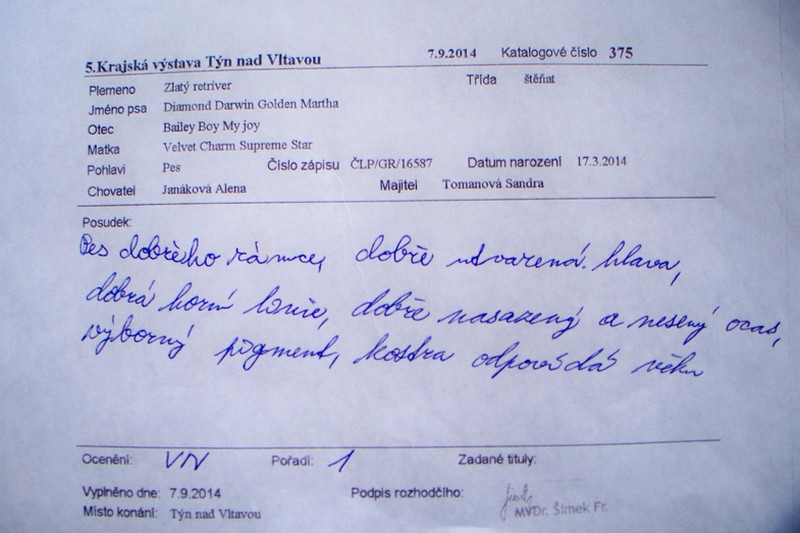 5.Krajská výstava Týn nad Vltavou 7.9.2014 Katalogové číslo 375
Plemeno Zlatý retriver Třída štěňat
Jméno psa Diamond Darwin Golden Martha
Otec Bailey Boy My joy
Matka Velvet Charm Supreme Star
Pohlaví Pes Číslo zápisu ČLP/GR/16587 Datum narození 17.3.2014
Chovatel Janáková Alena Majitel Tomanová Sandra
Posudek:
Pes dobrého rámce, dobře utvařená hlava,
dobrá horní linie, dobře nasazený a nesený ocas,
výborný pigment, kostra odpovídá věku
Ocenění: VN Pořadí: 1 Zadané tituly:
Vyplněno dne: 7.9.2014 Podpis rozhodčího:
MVDr. Šimek Fr.
Místo konání: Týn nad Vltavou